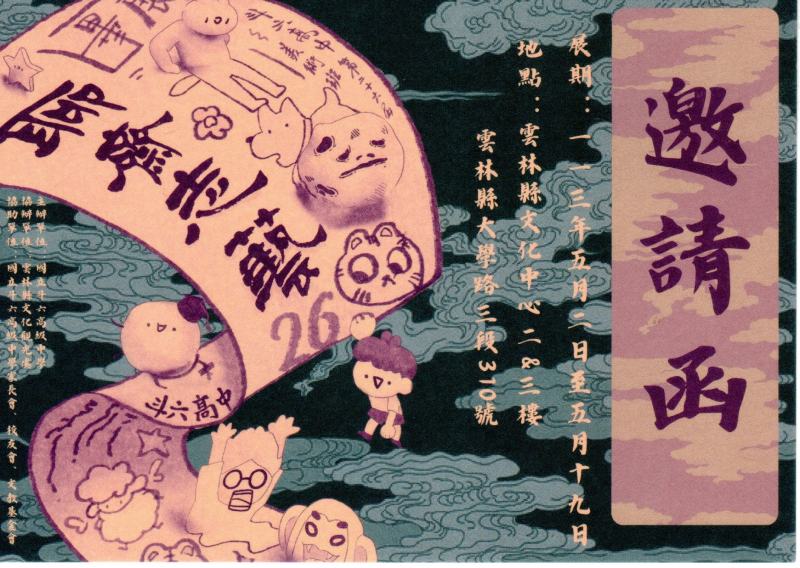 邀請函
展期：一一三年五月二日至五月十九日
地點：雲林縣文化中心二&三樓
雲林縣大學路三段310號
斗六高中
美術班第二十六屆
畢展
聊齋志藝
26
斗六高中
主辦單位：國立斗六高級中學
協辦單位：雲林縣文化觀光處
協助單位：國立斗六高級中學家長會、校友會、文教基金會